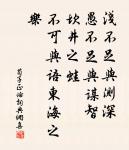 淺不足與測深
愚不足與謀智
坎井之蛙
不可與語東海之
樂
荀子正論